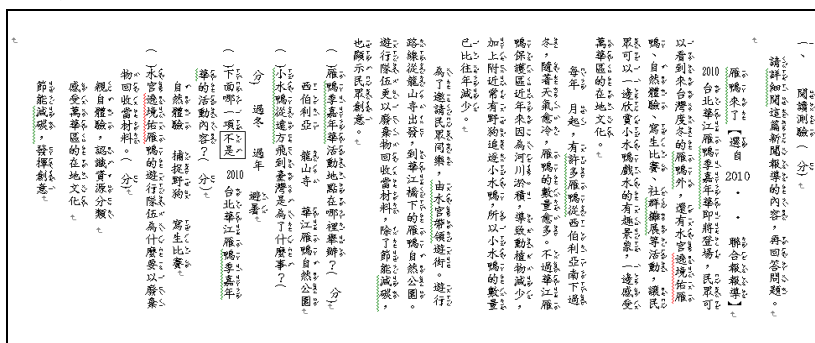 一、 閱讀測驗 （ 分）
請詳細閱讀這篇新聞報導的內容，再回答問題。
雁鴨來了【選自 2010 ． ． 聯合報報導】
2010 台北華江雁鴨季嘉年華即將登場，民眾可
以看到來台灣度冬的雁鴨外，還有水宮遶境佑雁
鴨、自然體驗、寫生比賽、社群攤展等活動，讓民
眾可以一邊欣賞小水鴨戲水的有趣景象，一邊感受
萬華區的在地文化。
每年 月起，有許多雁鴨從西伯利亞南下過
冬，隨著天氣愈冷，雁鴨的數量愈多。不過華江雁
鴨保護區近年來因為河川淤積，導致動植物減少，
加上附近常有野狗追逐小水鴨，所以小水鴨的數量
已比往年減少。
為了邀請民眾同樂，由水宮帶領遊街。遊行
路線從龍山寺出發，到華江橋下的雁鴨自然公園。
遊行隊伍更以廢棄物回收當材料，除了節能減碳，
也顯示民眾創意。
（ ）雁鴨季嘉年華活動地點在哪裡舉辦？（ 分）
西伯利亞 龍山寺 華江雁鴨自然公園
（ ）小水鴨從遠方飛到臺灣是為了什麼事？（
分） 過冬 過年 避暑
（ ）下面哪一項不是 2010 台北華江雁鴨季嘉年
華的活動內容？（ 分）
自然體驗 捕捉野狗 寫生比賽
（ ）水宮遶境佑雁鴨的遊行隊伍為什麼要以廢棄
物回收當材料。（ 分）
親自體驗，認識資源分類
感受萬華區的在地文化
節能減碳，發揮創意